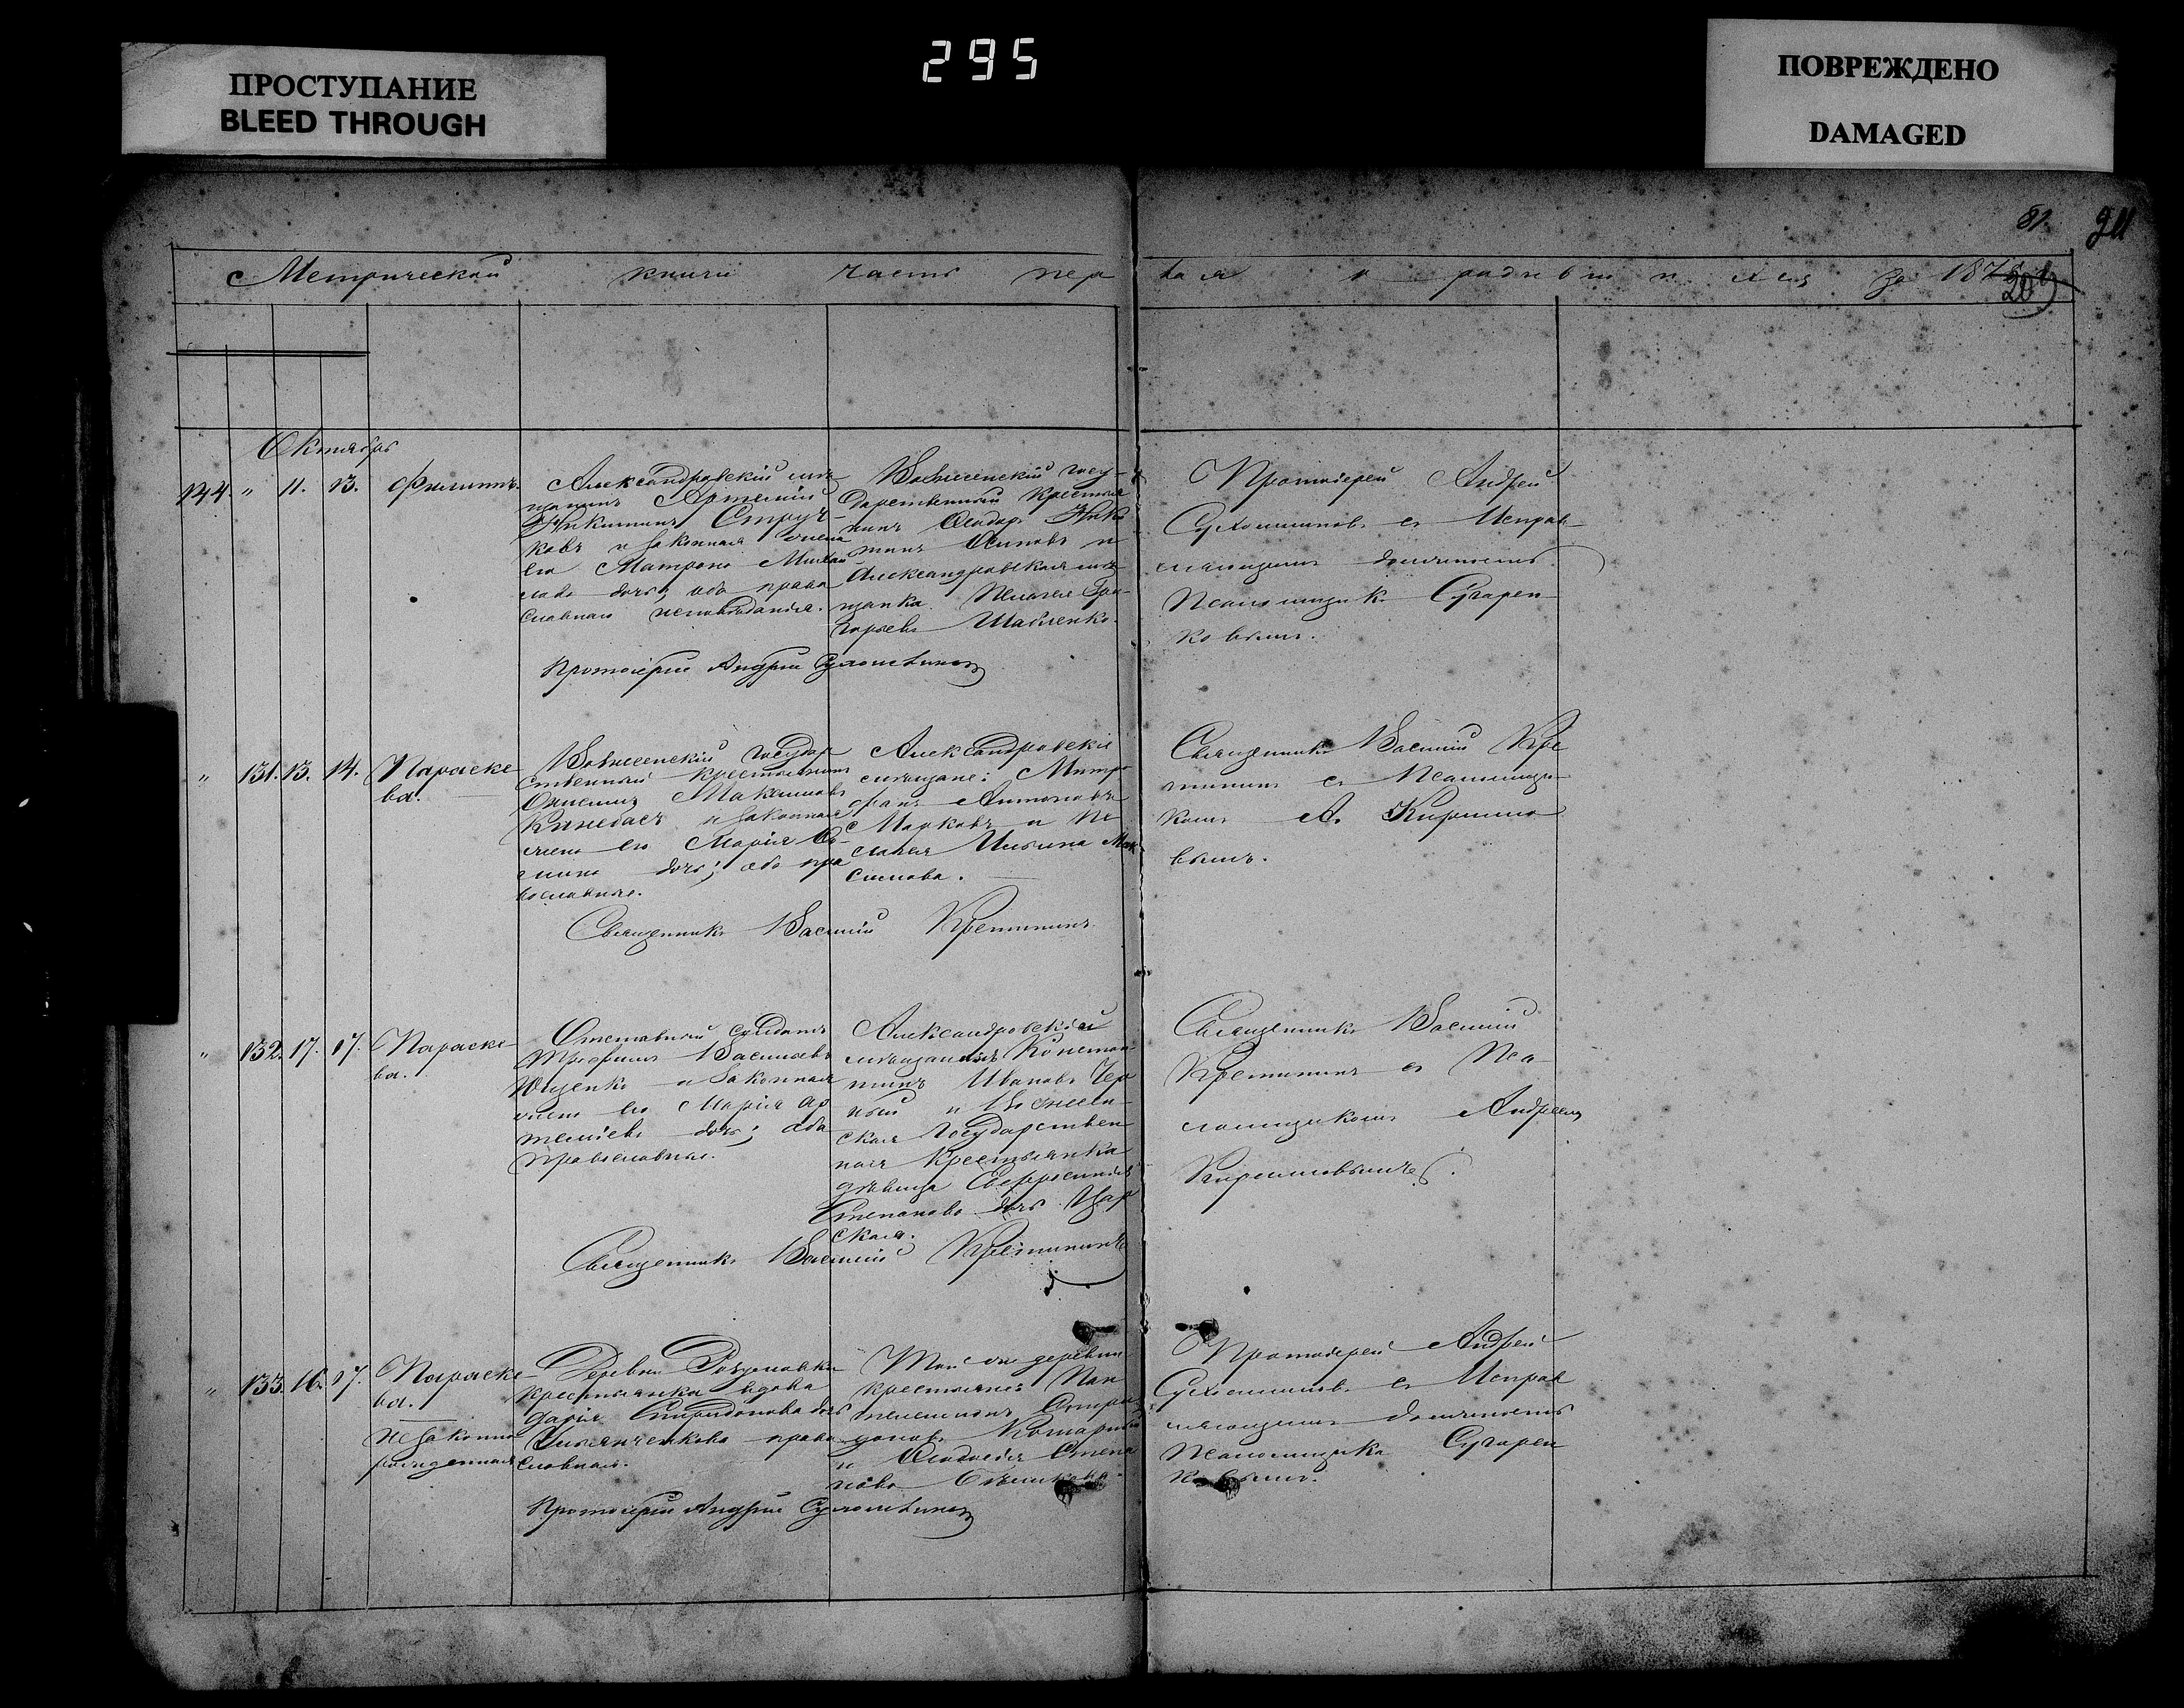 ПРОСТУПАНИЕ
BLEED THROUGH
295
ПОВРЕЖДЕНО
DAMAGED
81.
Метрической книги часть пер вая о родившихся за 187
209
Октябрь
144. " 11. 13. Филиппъ.
Александровскій мѣ-
щанинъ Артемій
Никитинъ Струч-
ковъ и законная жена
его Матрона Михай-
лова дочь, оба право
славнаго исповѣданія.
Вознесенскій госу-
дарственный крестья
нинъ Ѳеодоръ Ники
тинъ Осиповъ и
Александровская мѣ
щанка Пелагея Гри-
горьева Шабленко.
Протоіерей Андрей
Сухомлиновъ съ Исправ-
ляющимъ должность
Псаломщика Сухарен-
ковымъ.
Протоіерей Андрей Сухомлиновъ
" 131. 13. 14. Параске
ва.
Вознесенскій государ
ственный крестьянинъ
Максимовъ
и законная
жена его Марія
дочь; оба пра
вославные.
Александровскіе
мѣщане: Митро
фанъ Антоновъ
Марковъ и Пе
лагея Ильина Мак
симова.
Священникъ Василій Кре
мининъ съ Псаломщи-
комъ А. Кирилло
вымъ.
Священникъ Василій Кремининъ.
" 132. 17. 17. Параске
ва.
Отставный солдатъ
Трофимъ Васильевъ
Ющенко и законная
жена его Марія Ар
темьева дочь; оба
православные.
Александровскій
мѣщанинъ Констан-
тинъ Ивановъ Чер
ный и Вознесен-
ская Государствен
ная крестьянка
дѣвица Евфросинія
Степанова дочь Цар
ская.
Священникъ Василій
Кремининъ съ Пса-
ломщикомъ Андреемъ
Кирилловымъ.
Священникъ Василій Кремининъ
" 133. 16. 17. Параске
ва.
незаконно
рожденная
Деревни
крестьянка вдова
Дарія Спиридонова дочь
право
славная.
Той же деревни
крестьянинъ Пан
телеимонъ Спири
доновъ
и Ѳеодосія Степа
нова
Протоіерей Андрей
Сухомлиновъ съ Исправ
ляющимъ должность
Псаломщика Сухарен
ковымъ.
Протоіерей Андрей Сухомлиновъ